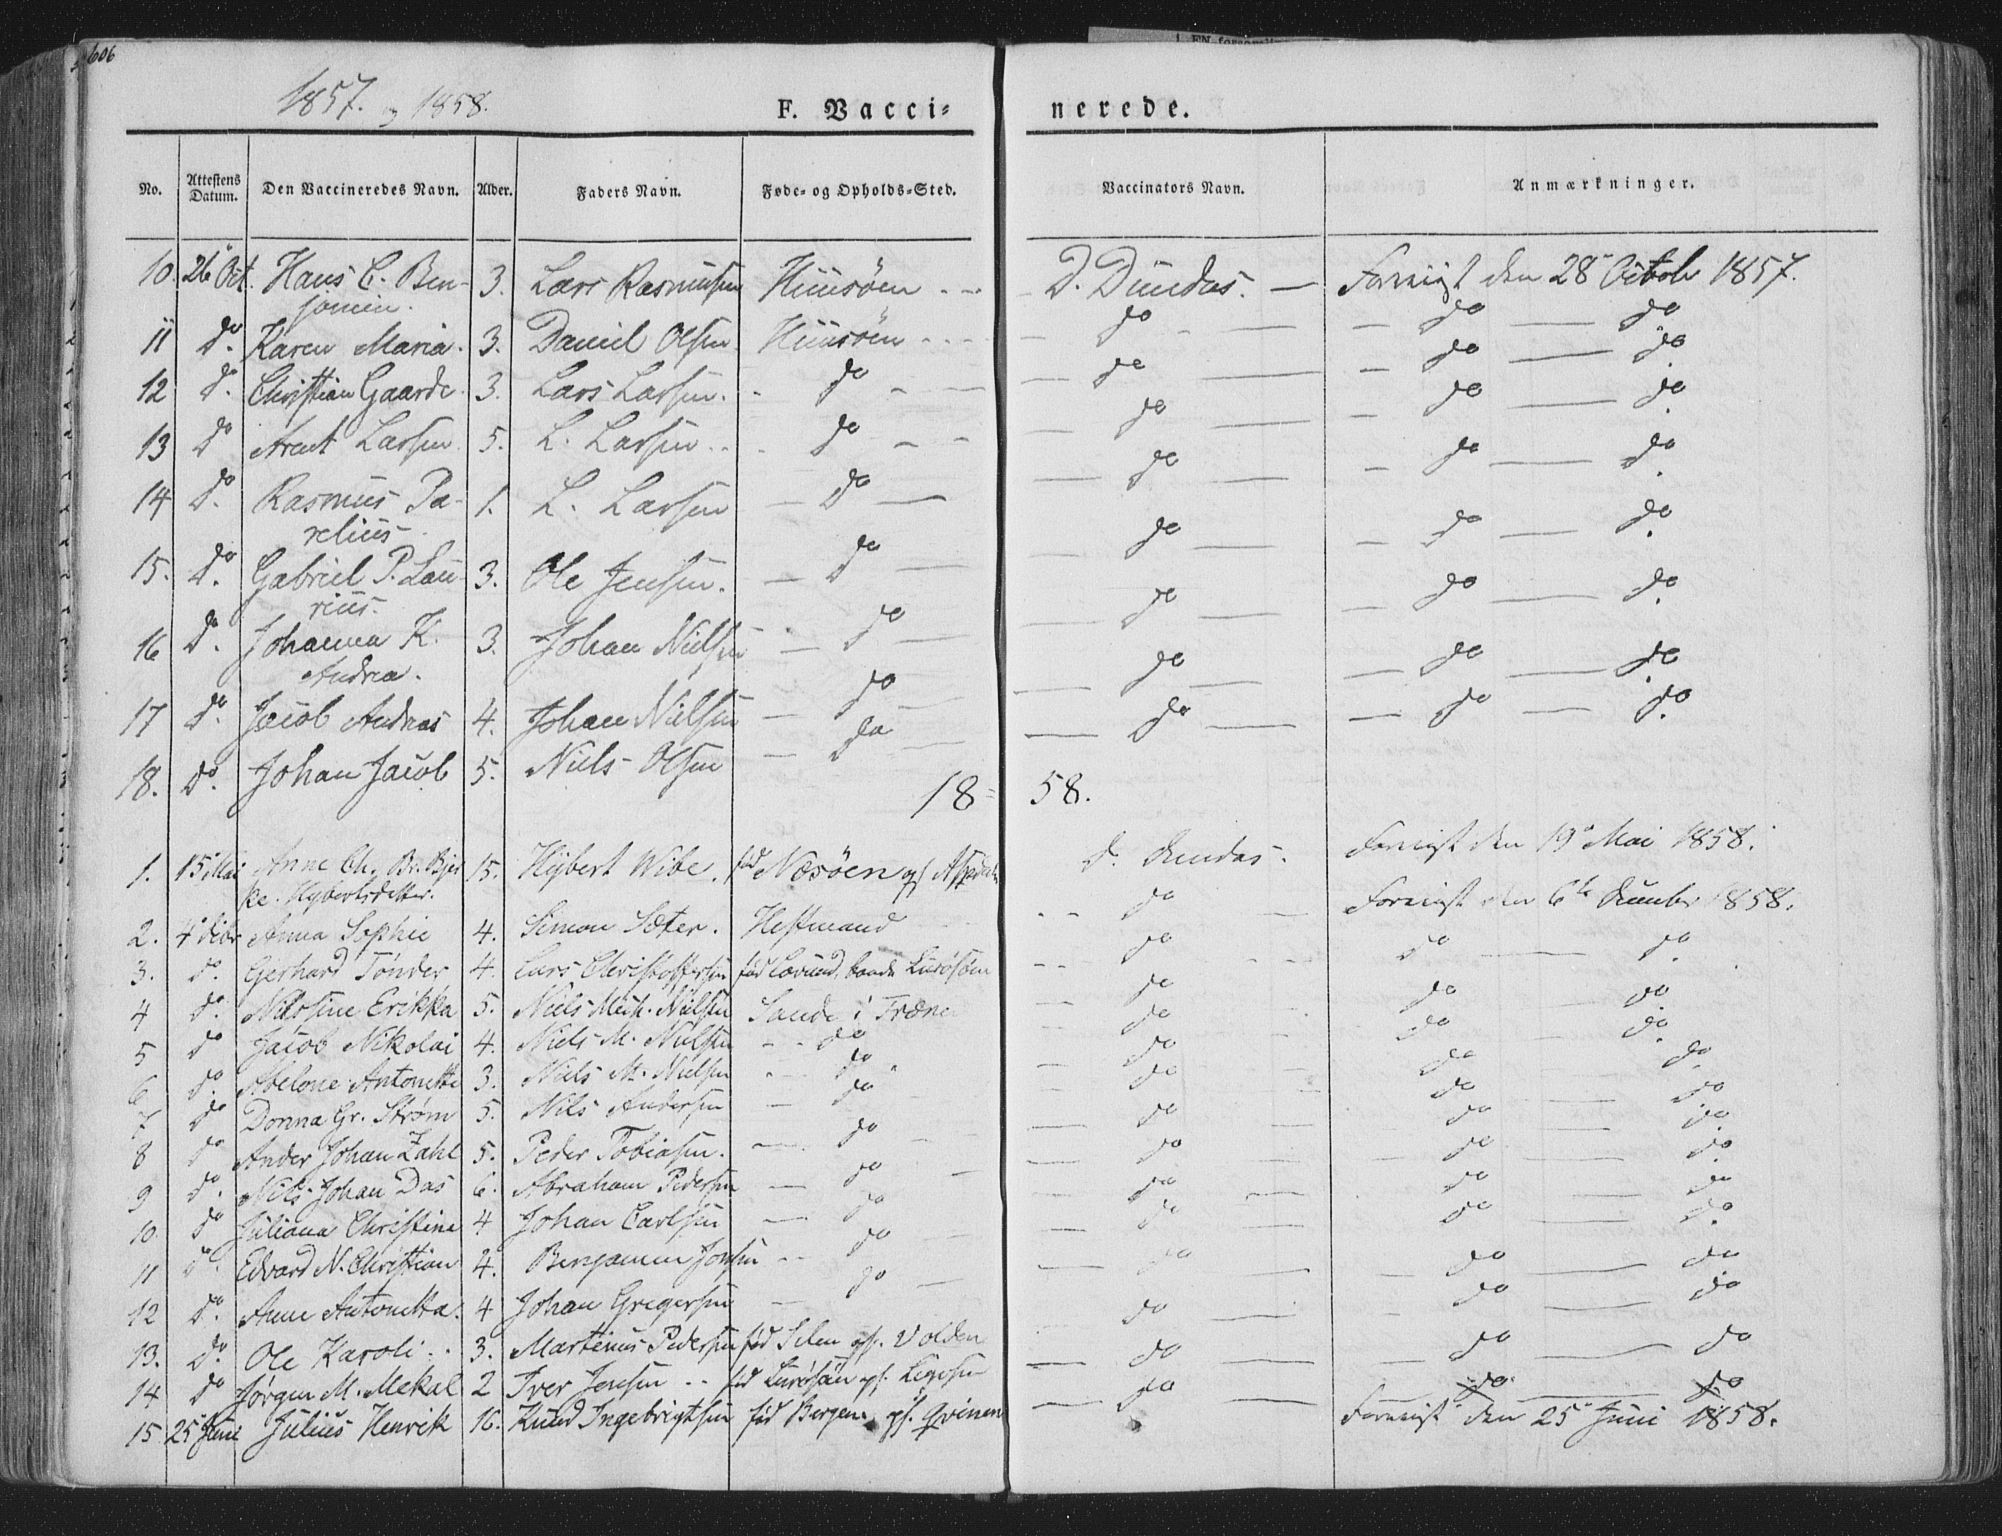 606
1857. og 1858.
F. Vacci=
nerede.
No. Attestens Datum. Den Vaccineredes Navn. Alder. Faders Navn. Føde- og Opholds-Sted. Vaccinators Navn. Anmærkninger.
10. 26 Oct. Hans C. Ben- 3. Lars Rasmussen Huusöen - - D. Dundas. — Forevist den 28 Octob 1857.
jamin.
11 do. Karen Maria. 3. Daniel Olsen Huusöen - - - do - — do — do
12 do. Christian Gaarde. 3. Lars Larsen. - do - — — do — — do — do
13 do Arent Larsen 5. L. Larsen - - - do - - — do — — do — do.
14 do. Rasmus Pa- 1. L. Larsen — do — — do — — do — do.
relius
15. do. Gabriel P. Lau- 3. Ole Jensen. — do — — do — — do — do.
rius.
16 do. Johanna K. 3. Johan Nielsen — do — — do — — do — do.
Andrea.
17 do. Jacob Andreas 4. Johan Nielsen — do — — do — — do — do.
18. do. Johan Jacob 5. Niels Olsen — do — — do — — do — do.
18= 58.
1. 15 Mai Anne Ch. Br. Bjer 15. Hybert Wibe. fød Næsöen D. Dundas. Forevist den 19 Mai 1858.
ke. Hybertsdatter.
2. 4 Decbr Anna Sophie 4. Simon Sæter. Hestmand - - do — Forevist den 6te December 1858.
3. do. Gerhard Tönder 4. Lars Christoffersen fød Lovund, Luröföen - - do - - do — do.
4 do. Nilsine Erikka 5. Niels Mich. Nielsen Sande i Træne — do - do — do.
5 do Jacob Nikolai 4. Niels M. Nielsen - - do — do - do — do.
6 do. Abelone Antonette 3. Niels M. Nielsen - - do — do — do — do
7 do Donna Gr. Ström 5. Nils Andersen — do — do — do — do
8 do Ander Johan Zahl 5. Peder Tobiasen. — do — do — do — do.
9 do. Nils Johan Das 6. Abraham Pedersen — do — do — do — do.
10. do Juliana Christina 4 Johan Carlsen — do — do — do — do
11 do. Edvard N. Christian 4. Benjamin Jonsen - - do — do — do — do.
12 do. Anne Antonetta. 4 Johan Gregersen — do — do — do — do
13. do. Ole Karoli - - 3. Martinus Pedersen fød Selen Volden — do — do — do
14 do Jørgen M. Mekal 2 Iver Jensen - - fød — do — do — do
15 25 Juni Julius Henrik 16. Knud Ingebrigtsen fød Bergen Qvinen Forevist den 25 Juni 1858.